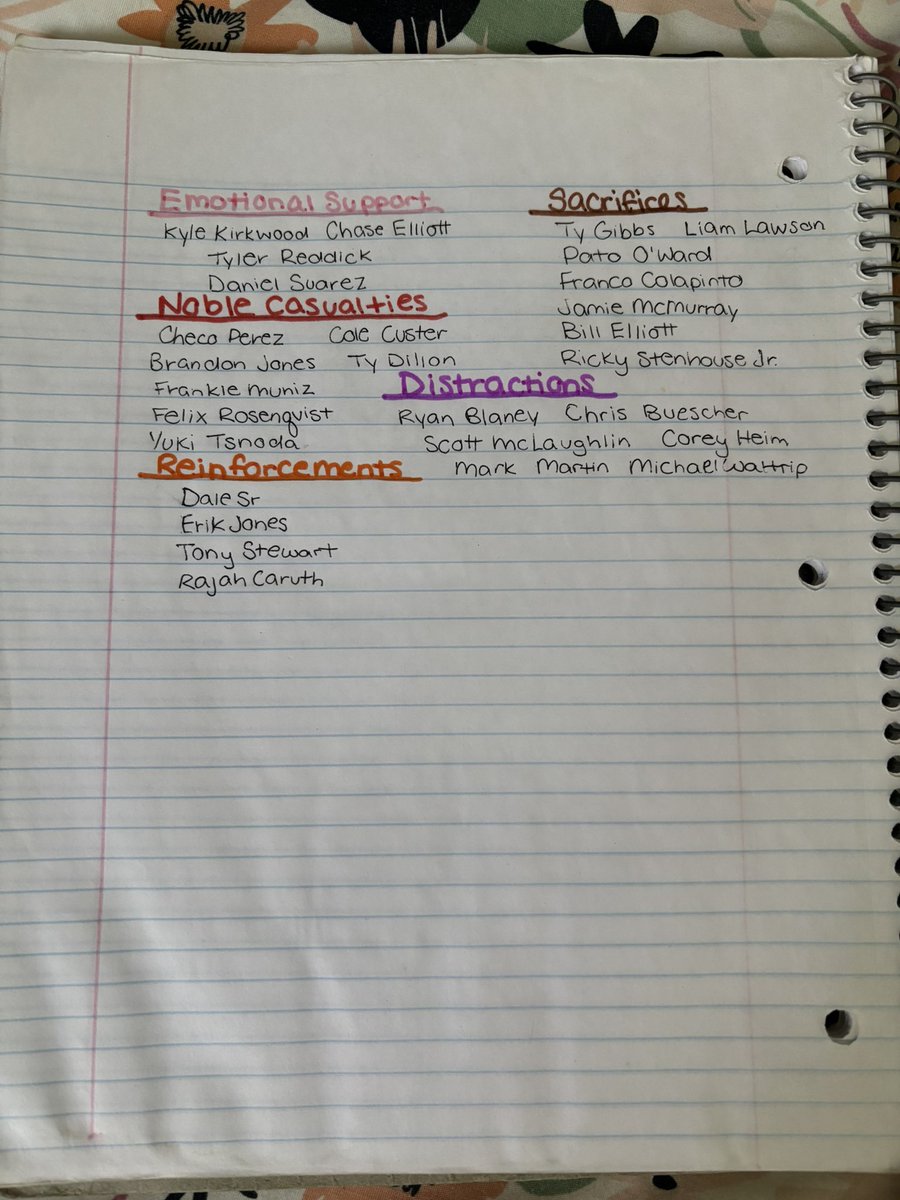 Emotional Support
Kyle Kirkwood Chase Elliott
Tyler Reddick
Daniel Suarez
Noble Casualties
Checo Perez Cole Custer
Brandon Jones Ty Dillon
Frankie muniz
Felix Rosenqvist
Yuki Tsnoda
Reinforcements
Dale Sr
Erik Jones
Tony Stewart
Rajah Caruth
Sacrifices
Ty Gibbs Liam Lawson
Pato O'Ward
Franco Colapinto
Jamie McMurray
Bill Elliott
Ricky Stenhouse Jr.
Distractions
Ryan Blaney Chris Buescher
Scott McLaughlin Corey Heim
Mark Martin Michael Waltrip